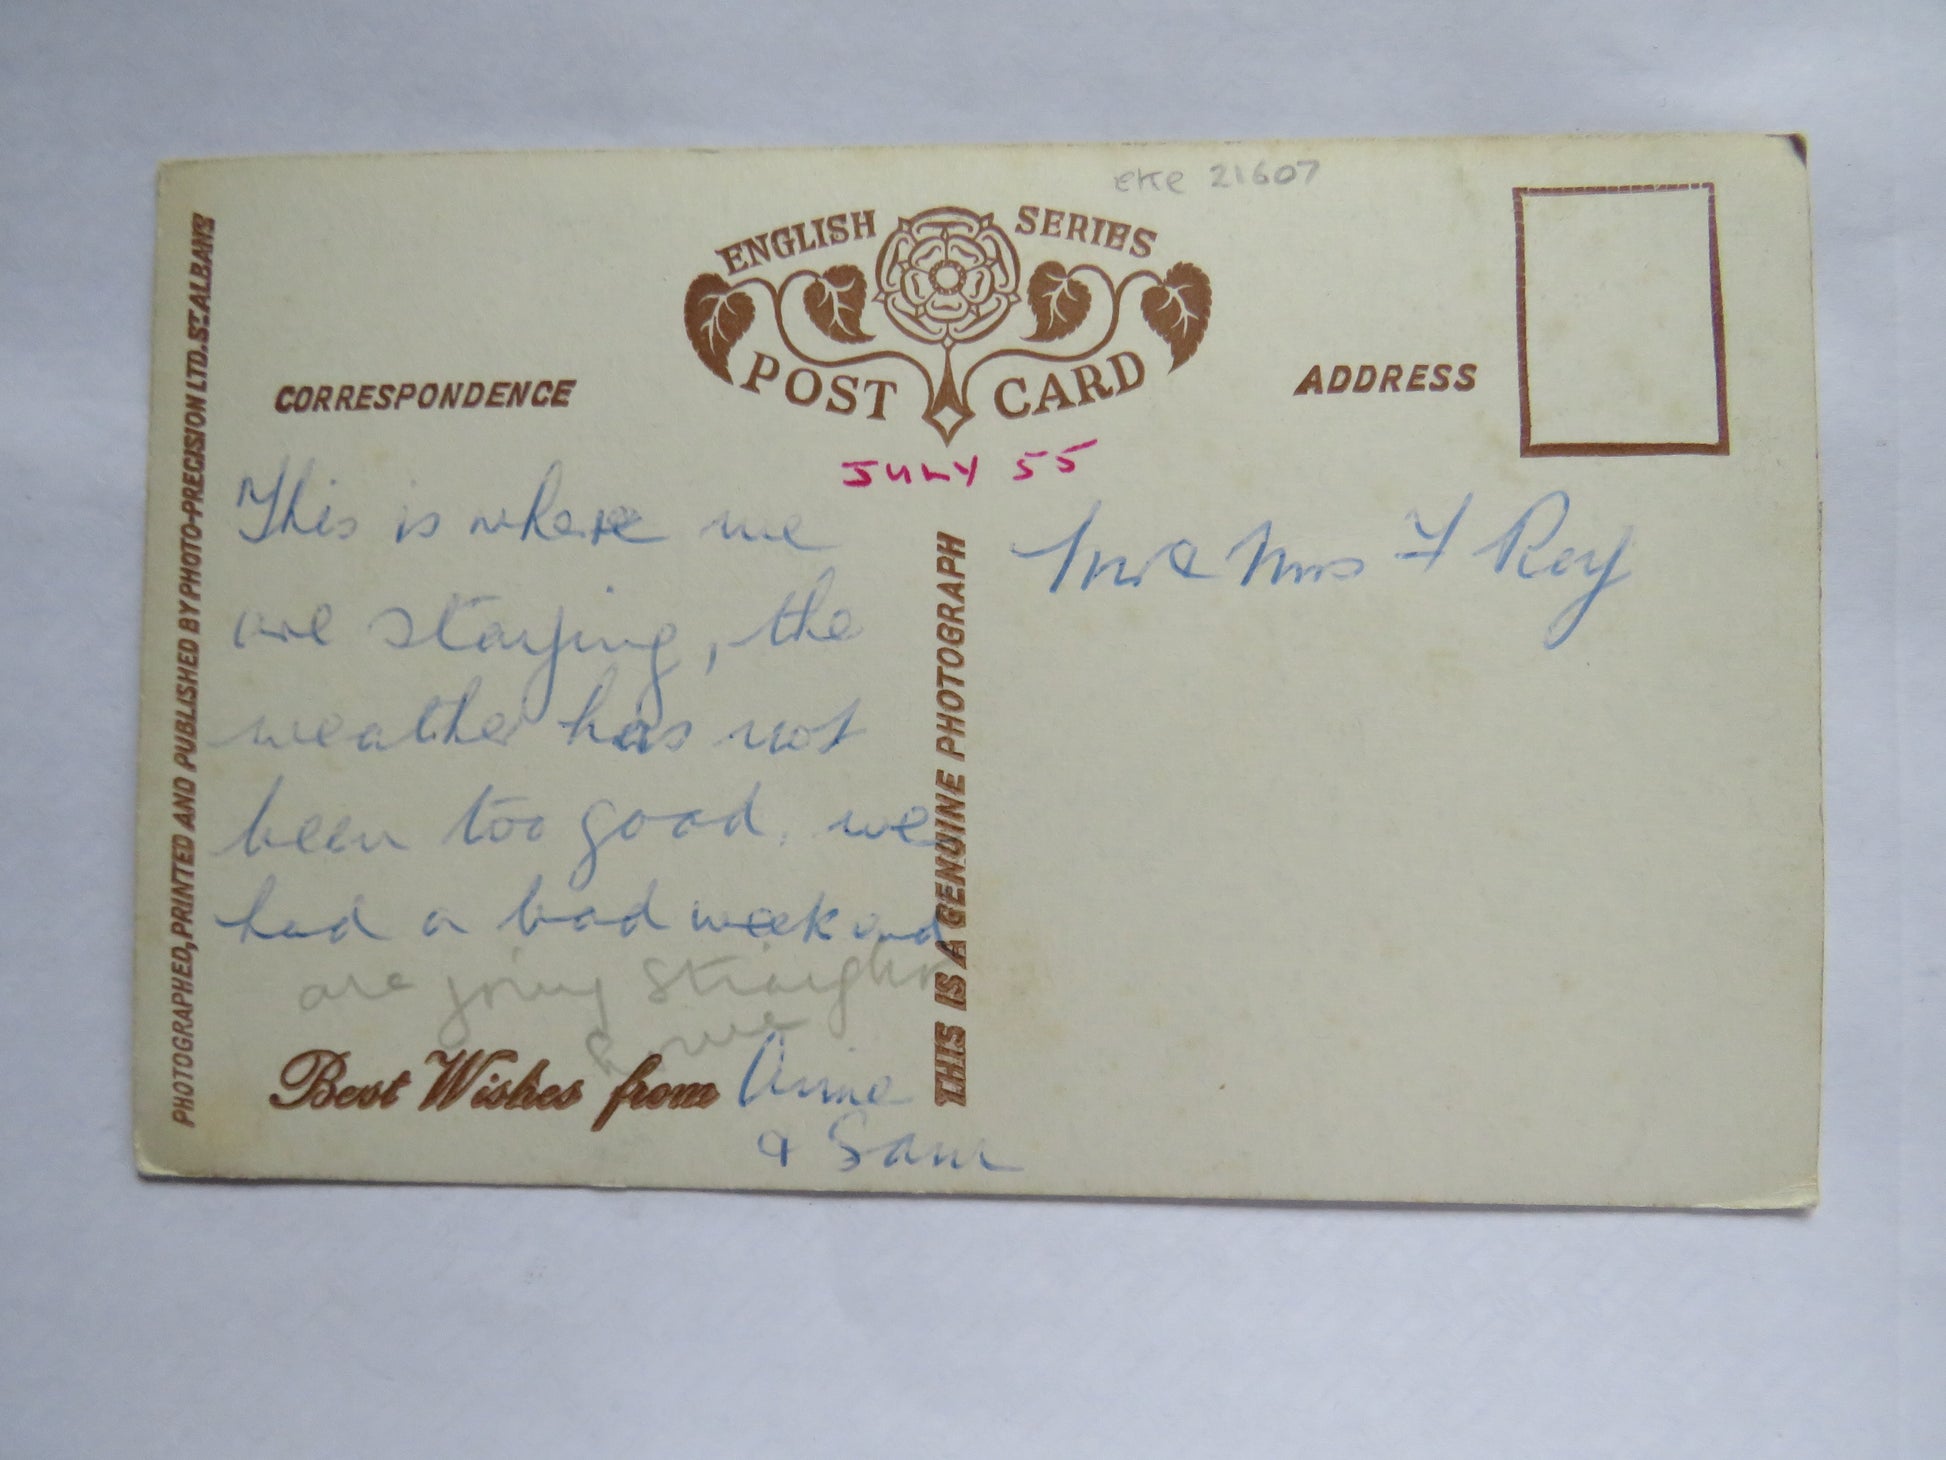 eke 21607
ENGLISH SERIES
POST CARD
CORRESPONDENCE
ADDRESS
JULY 55
This is where we
are staying, the
weather has not
been too good, we
had a bad weekend
are going straight
home
Best Wishes from Anne
& Sam
Mr & Mrs F Roy
THIS IS A GENUINE PHOTOGRAPH
PHOTOGRAPHED, PRINTED AND PUBLISHED BY PHOTO-PRECISION LTD. ST. ALBANS